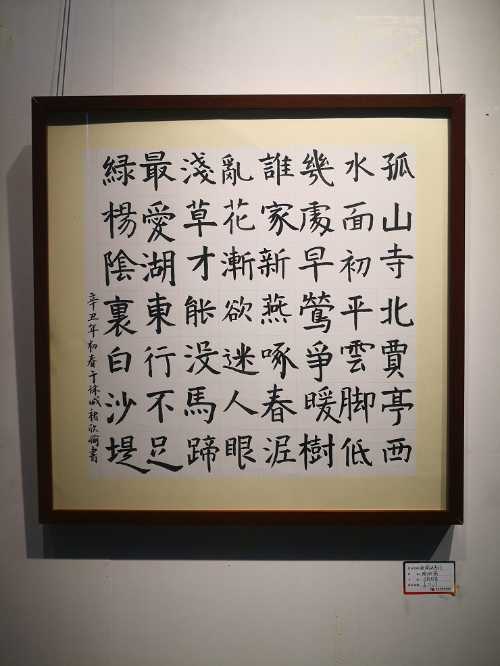 孤山寺北賈亭西
水面初平雲脚低
幾處早鶯爭暖樹
誰家新燕啄春泥
亂花漸欲迷人眼
淺草才能没馬蹄
最愛湖東行不足
緑楊陰裏白沙堤
辛丑年初春于
書